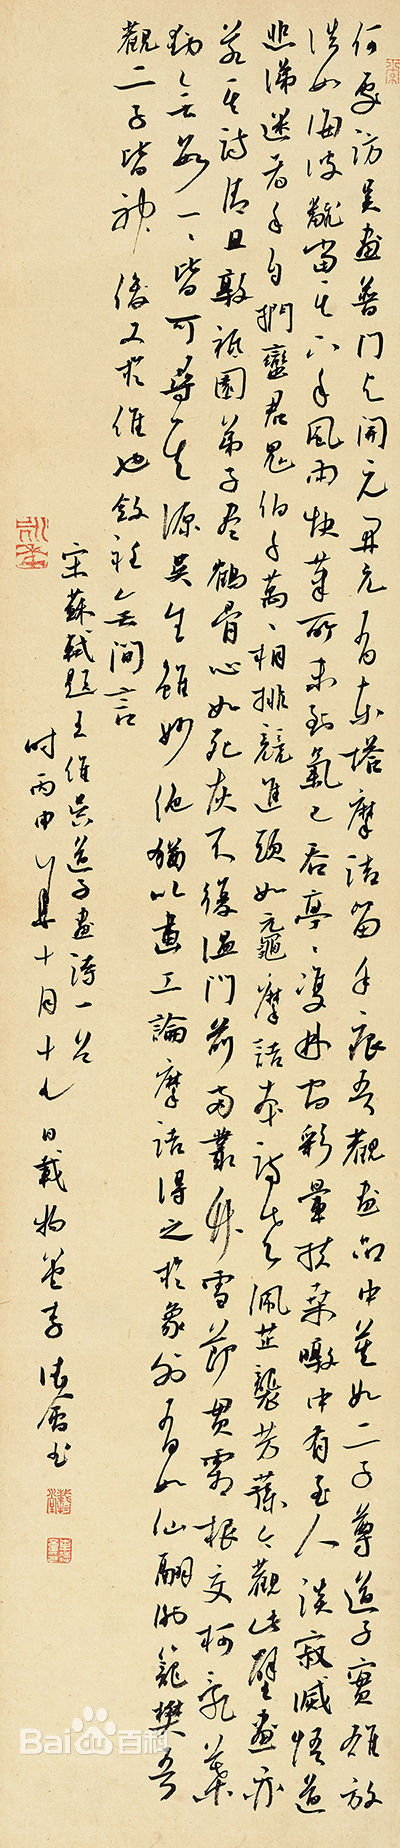 何處訪吳畫普門與開元開元有東塔摩詰留手痕吾觀畫品中莫如二子尊道子實雄放
浩如海波翻當其下手風雨快筆所未到氣已吞亭亭雙林間彩暈扶桑暾中有至人談寂滅悟道
悲涕迷者手自捫蠻君鬼伯千萬萬相排競進頭如黿摩詰本詩老佩芷襲芳蓀今觀此壁畫亦
若其詩清且敦祇園弟子盡鶴骨心如死灰不復溫門前兩叢竹雪節貫霜根交柯亂葉
動無數一一皆可尋其源吳生雖妙絕猶以畫工論摩詰得之於象外有如仙翮謝籠樊吾
觀二子皆神俊又於維也斂衽無間言
宋蘇軾題王維吳道子畫詩一首
時丙申十月十九日載物李書
Bai百科